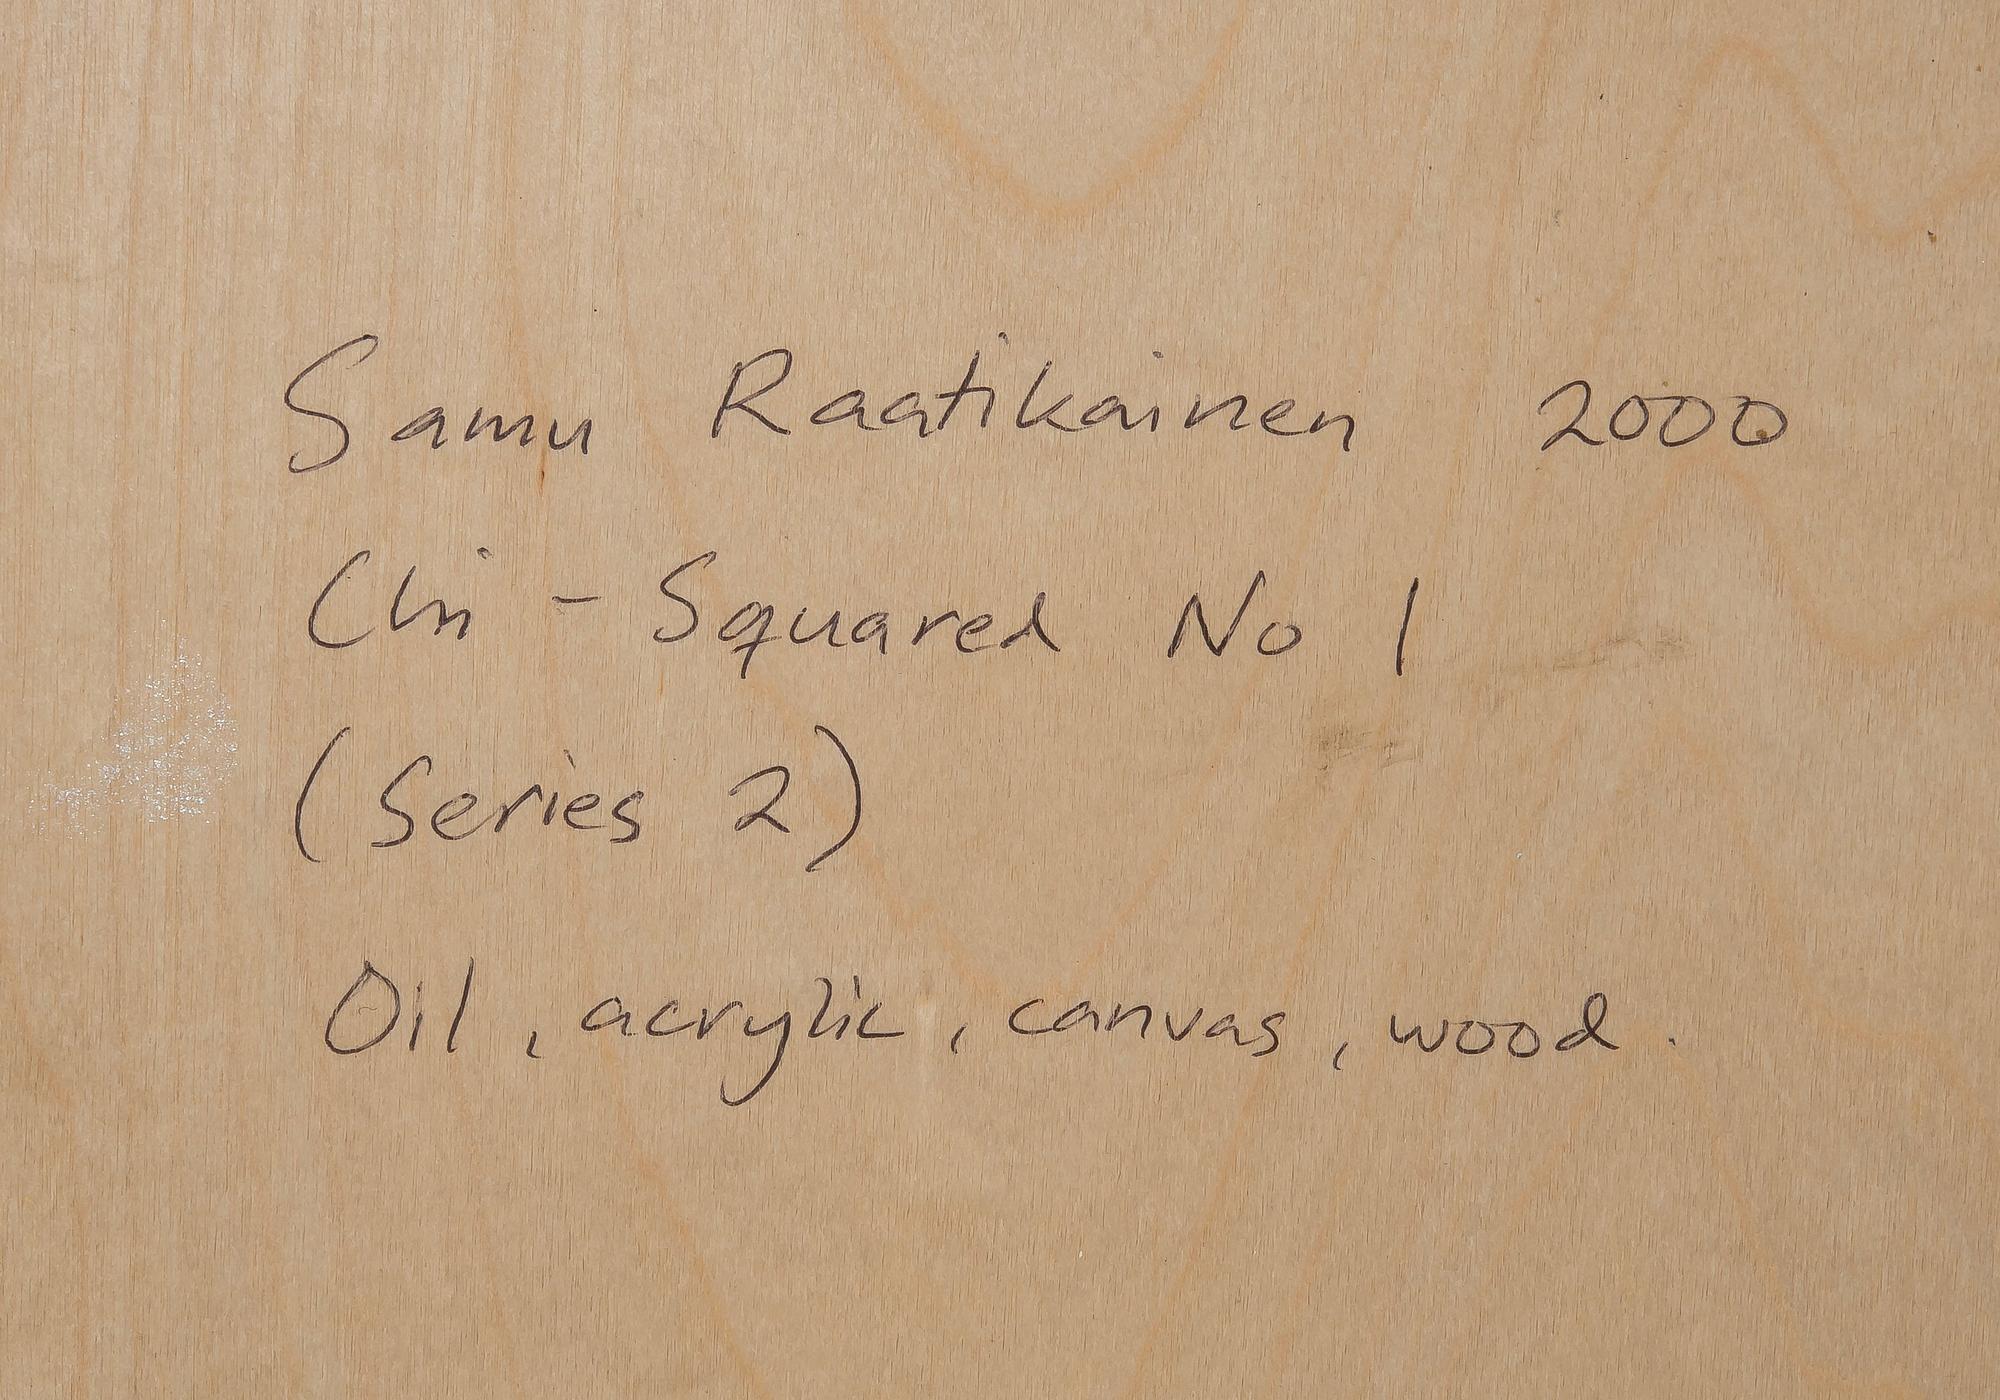 Samu Raatikainen 2000
Chi-Squared No 1
(Series 2)
Oil, acrylic, canvas, wood.